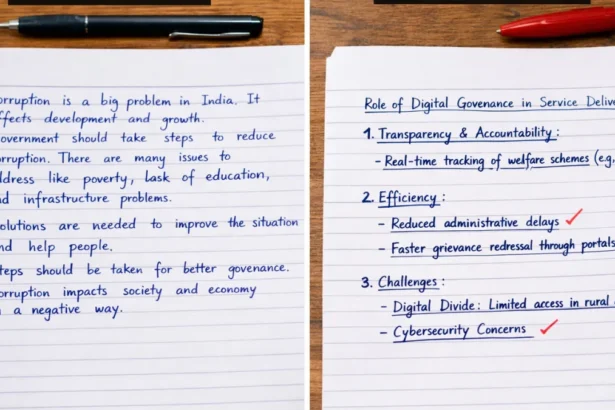 orruption is a big problem in India. It
ffects development and growth.
overnment should take steps to reduce
orruption. There are many issues to
ddress like poverty, lask of education,
nd infrastructure problems.
olutions are needed to improve the situation
nd help people.
teps should be taken for better govenance.
orruption impacts society and economy
a negative way.
Role of Digital Govenance in Service Delive
1. Transparency & Accountability:
- Real-time tracking of welfare schemes (e.g.,
2. Efficiency:
- Reduced administrative delays
- Faster grievance redressal through portals
3. Challenges:
- Digital Divide: Limited access in rural
- Cybersecurity Concerns